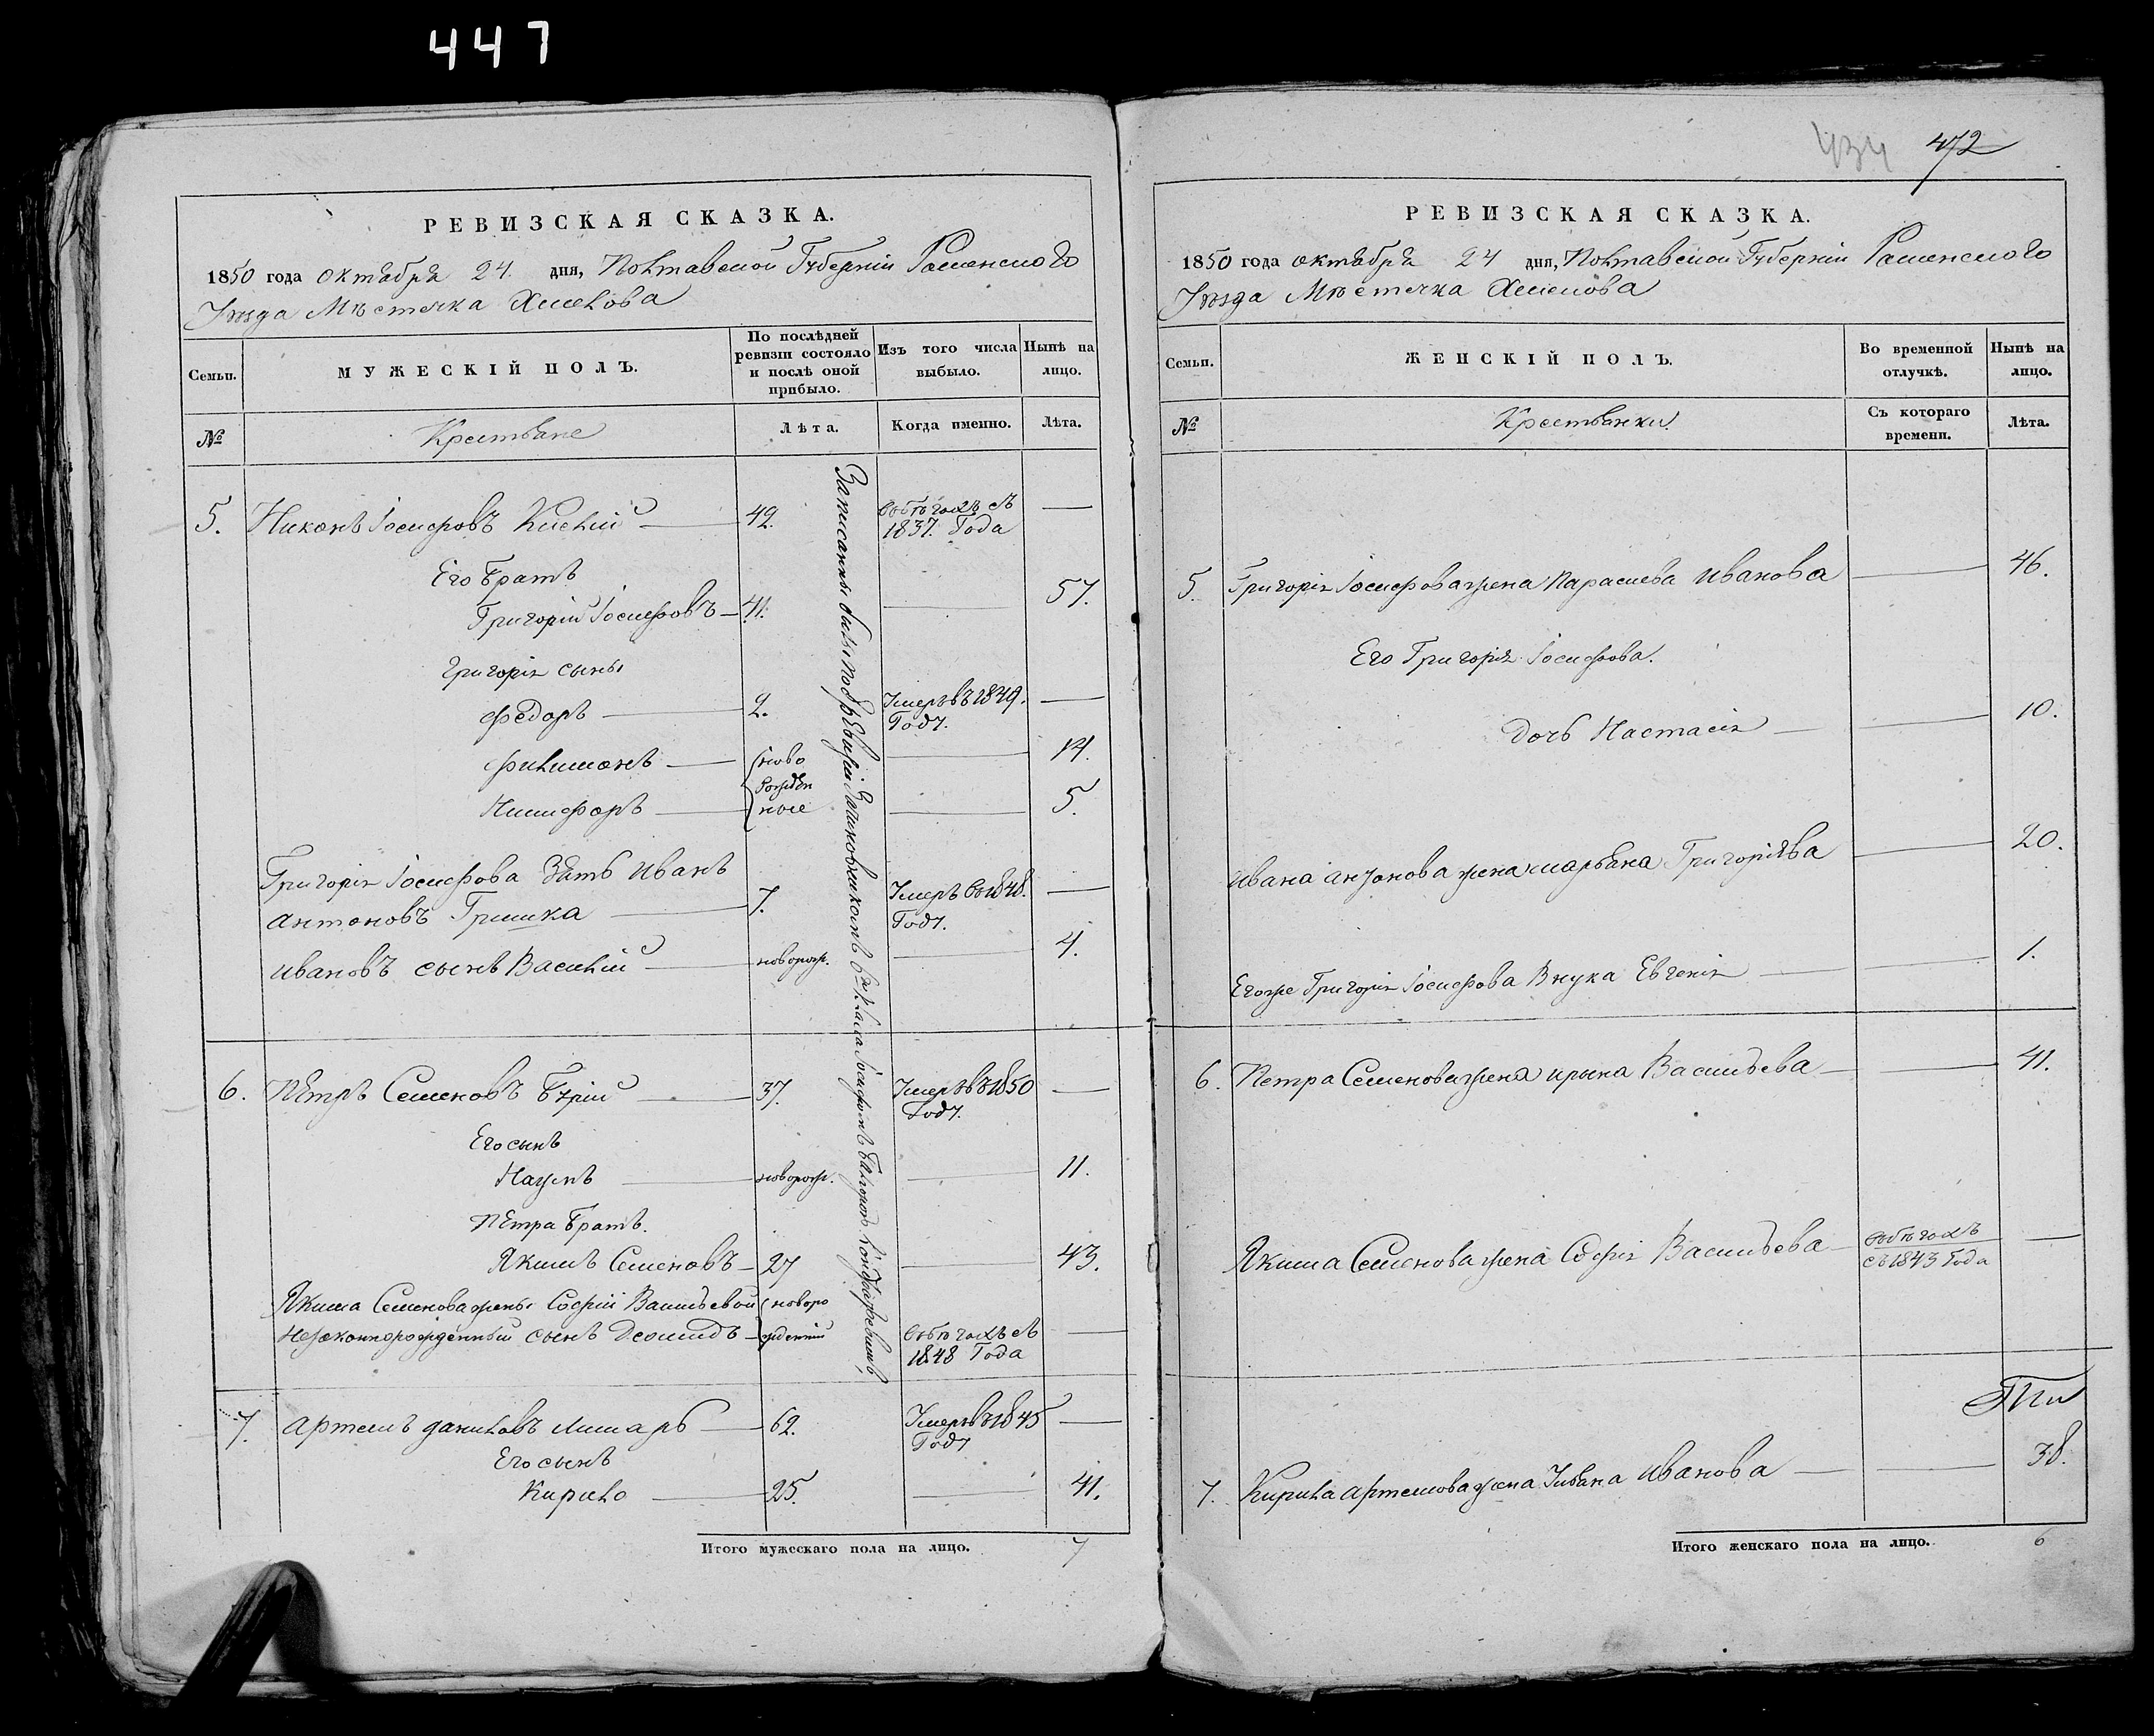 447
434 472
РЕВИЗСКАЯ СКАЗКА.
1850 года октября 24. дня, Полтавской Губерніи Роменского
Уезда Мѣстечка Хмелова
Семьи.
МУЖЕСКІЙ ПОЛЪ.
По послѣдней ревизіи состояло и послѣ оной прибыло.
Изъ того числа выбыло.
Нынѣ на лицо.
№
Крестьяне
Лѣта.
Когда именно.
Лѣта.
5. Никонъ Іосифовъ 49. Въ бѣгахъ съ —
1837. Года
Его Братъ
Григорій Іосифовъ — 41. — 57.
Григорія сыны
Федоръ — 2. Умеръ въ 1849. —
Году.
Филимонъ — ново — 14.
рожден
Никифоръ — ные — 5.
Григорія Іосифова Зять Иванъ
Антоновъ Гришка — 7. Умеръ въ 1848. —
Году.
Ивановъ сынъ Василій — новорож. — 4.
6. Петръ Семеновъ Бурій — 37. Умеръ въ 1850 —
Году.
Его сынъ
Наумъ — новорож. — 11.
Петра Братъ.
Якимъ Семеновъ — 27 — 43.
Якима Семенова жены Софіи Васильевой новоро
Незаконнорожденный сынъ Деомидъ — жденный Въ бѣгахъ съ —
1848 Года
7. Артемъ Даниловъ Лимарь — 62. Умеръ въ 1845 —
Году
Его сынъ
Кирило — 25. — 41.
Записанны были по 8 ревизіи за
Итого мужескаго пола на лицо. 7
РЕВИЗСКАЯ СКАЗКА.
1850 года октября 24 дня, Полтавской Губерніи Роменского
Уезда Мѣстечка Хмелова
Семьи.
ЖЕНСКІЙ ПОЛЪ.
Во временной отлучкѣ.
Нынѣ на лицо.
№
Крестьянки.
Съ котораго времени.
Лѣта.
5. Григорія Іосифова жена Параскева Иванова — 46.
Его Григорія Іосифова.
дочь Настасія — — 10.
Ивана Антонова жена Марьяна Григоріява — 20.
Егоже Григорія Іосифова Внука Евгенія — — 1.
6. Петра Семенова жена Ирина Васильева — — 41.
Якима Семенова жена Софія Васильева — въ бѣгахъ —
съ 1843 Года
7. Кирила Артемова жена Ульяна Иванова — — 38.
Итого женскаго пола на лицо. 6